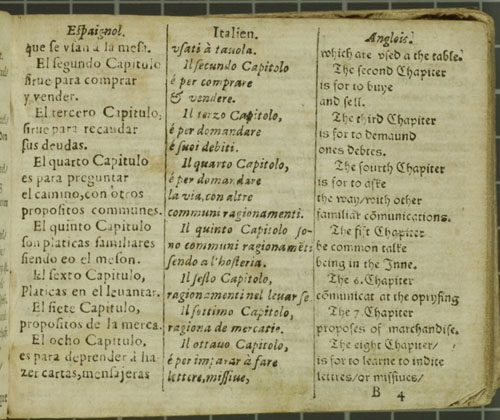 Espaignol.
que se vsan a la mesa.
El segundo Capitulo
sirue para comprar
y vender.
El tercero Capitulo,
sirue para recaudar
sus deudas.
El quarto Capitulo
es para preguntar
el camino, con otros
propositos communes.
El quinto Capitulo
son platicas familiares
siendo eo el meson.
El sexto Capitulo,
Platicas en el leuantar.
El siete Capitulo,
propositos de la merca.
El ocho Capitulo,
es para deprender á ha-
zer cartas, mensajeras
Italien.
vsati à tauola.
Il secundo Capitolo
é per comprare
& vendere.
Il terzo Capitolo,
é per domandare
é suoi debiti.
Il quarto Capitolo,
é per domandare
la via, con altre
communi ragionamenti.
Il quinto Capitolo so-
no communi ragionamēti
sendo a l'hosteria.
Il sesto Capitolo,
ragionamenti nel leuarse.
Il settimo Capitolo,
ragiona de mercatie.
Il ottauo Capitolo,
é per imparar à fare
lettere, missiue,
Anglois.
which are vsed a the table.
The second Chapiter
is for to buye
and sell.
The third Chapiter
is for to demaund
ones debtes.
The fourth Chapiter
is for to aske
the way/with other
familiar cōmunications.
The fift Chapiter
be common talke
being in the Inne.
The 6. Chapiter
cōmunicat at the oprysing
The 7. Chapiter
proposes of marchandise.
The eight Chapiter/
is for to learne to indite
letters/or missiues/
B 4